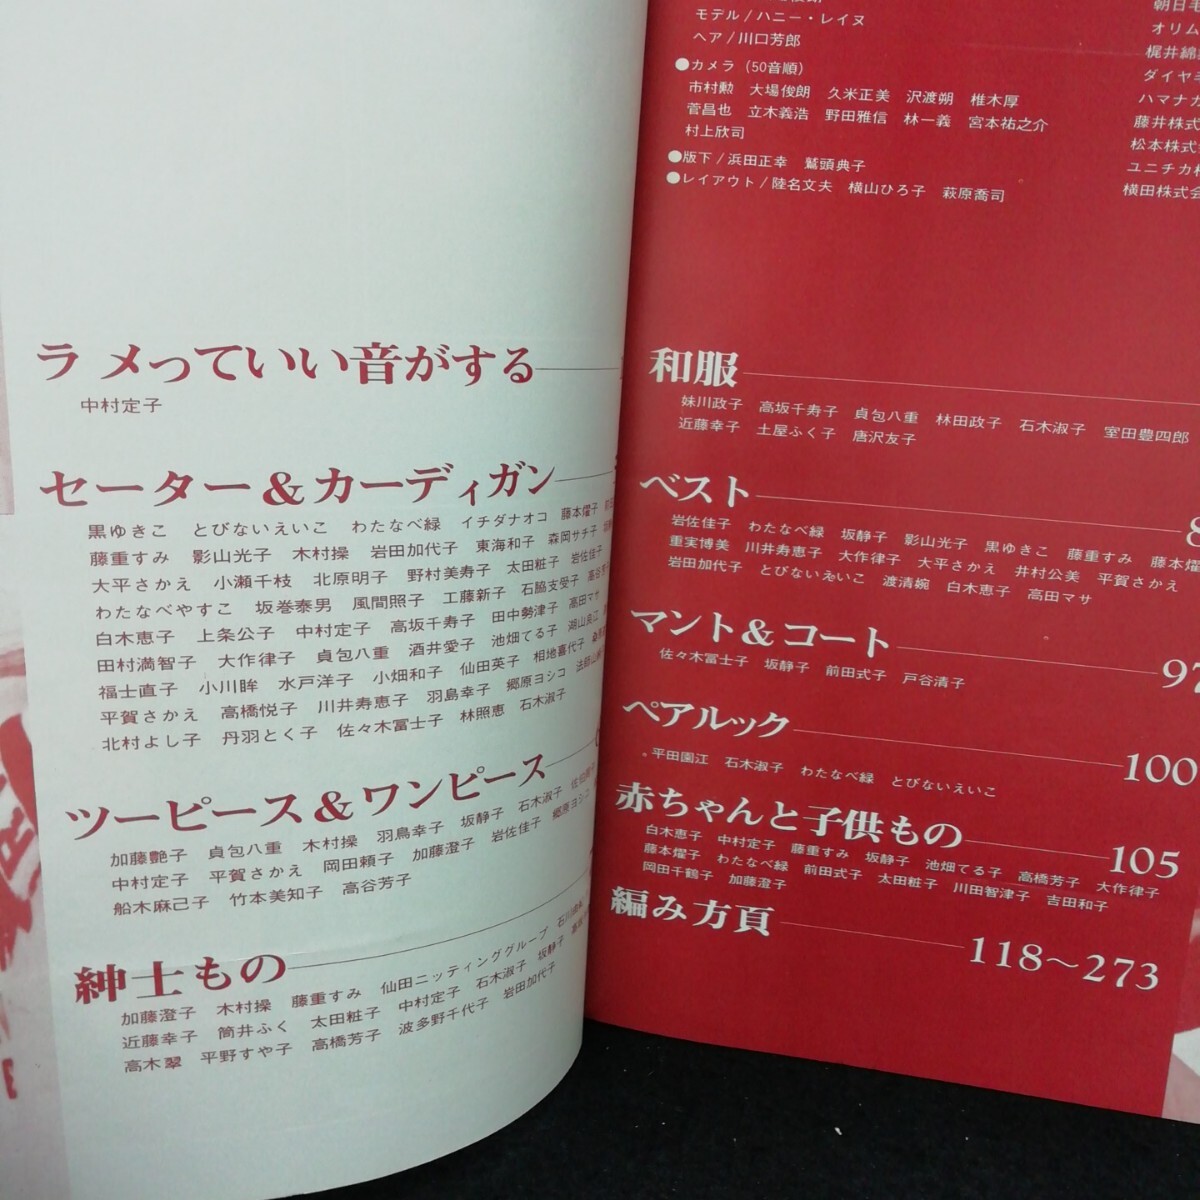 ラメっていい音がする
中村定子
セーター&カーディガン
黒ゆきこ とびないえいこ わたなべ緑 イチダナオコ 藤本燿子
藤重すみ 影山光子 木村操 岩田加代子 東海和子 森岡サチ子
大平さかえ 小瀬千枝 北原明子 野村美寿子 太田粧子 岩佐佳子
わたなべやすこ 坂巻泰男 風間照子 工藤新子 石脇支受子
白木恵子 上条公子 中村定子 高坂千寿子 田中勢津子 高田マサ
田村満智子 大作律子 貞包八重 酒井愛子 池畑てる子
福士直子 小川眸 水戸洋子 小畑和子 仙田英子 相地喜代子
平賀さかえ 高橋悦子 川井寿恵子 羽島幸子 郷原ヨシコ
北村よし子 丹羽とく子 佐々木冨士子 林照恵 石木淑子
ツーピース&ワンピース
加藤艶子 貞包八重 木村操 羽鳥幸子 坂静子 石木淑子
中村定子 平賀さかえ 岡田頼子 加藤澄子 岩佐佳子 郷原ヨシコ
船木麻己子 竹本美知子 高谷芳子
紳士もの
加藤澄子 木村操 藤重すみ 仙田ニッティンググループ
近藤幸子 筒井ふく 太田粧子 中村定子 石木淑子 坂静子
高木翠 平野すや子 高橋芳子 波多野千代子 岩田加代子
モデル/ハニー・レイヌ
ヘア/川口芳郎
●カメラ(50音順)
市村勲 大場俊朗 久米正美 沢渡朔 椎木厚
菅昌也 立木義浩 野田雅信 林一義 宮本祐之介
村上欣司
●版下/浜田正幸 鷲頭典子
●レイアウト/陸名文夫 横山ひろ子 萩原喬司
朝日毛
オリム
梶井綿
ダイヤモ
ハマナカ
藤井株式
松本株式
ユニチカ
横田株式
和服
妹川政子 高坂千寿子 貞包八重 林田政子 石木淑子 室田豊四郎
近藤幸子 土屋ふく子 唐沢友子
ベスト 8
岩佐佳子 わたなべ緑 坂静子 影山光子 黒ゆきこ 藤重すみ 藤本燿
重実博美 川井寿恵子 大作律子 大平さかえ 井村公美 平賀さかえ
岩田加代子 とびないえいこ 渡清婉 白木恵子 高田マサ
マント&コート 97
佐々木冨士子 坂静子 前田式子 戸谷清子
ペアルック 100
平田園江 石木淑子 わたなべ緑 とびないえいこ
赤ちゃんと子供もの 105
白木恵子 中村定子 藤重すみ 坂静子 池畑てる子 高橋芳子 大作律子
藤本燿子 わたなべ緑 前田式子 太田粧子 川田智津子 吉田和子
岡田千鶴子 加藤澄子
編み方頁 118〜273